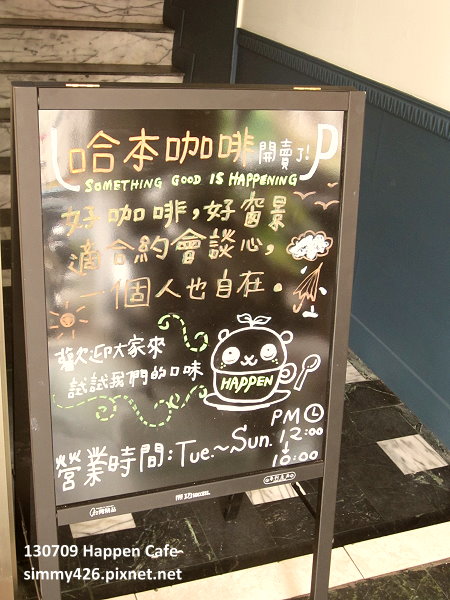 哈本咖啡 開賣了!
SOMETHING GOOD IS HAPPENING
好咖啡,好窗景
適合約會談心,
一個人也自在。
歡迎大家來
試試我們的口味
HAPPEN
營業時間:Tue.~Sun.
PM
12:00
↓
10:00
130709 Happen Cafe~
simmy426.pixnet.net